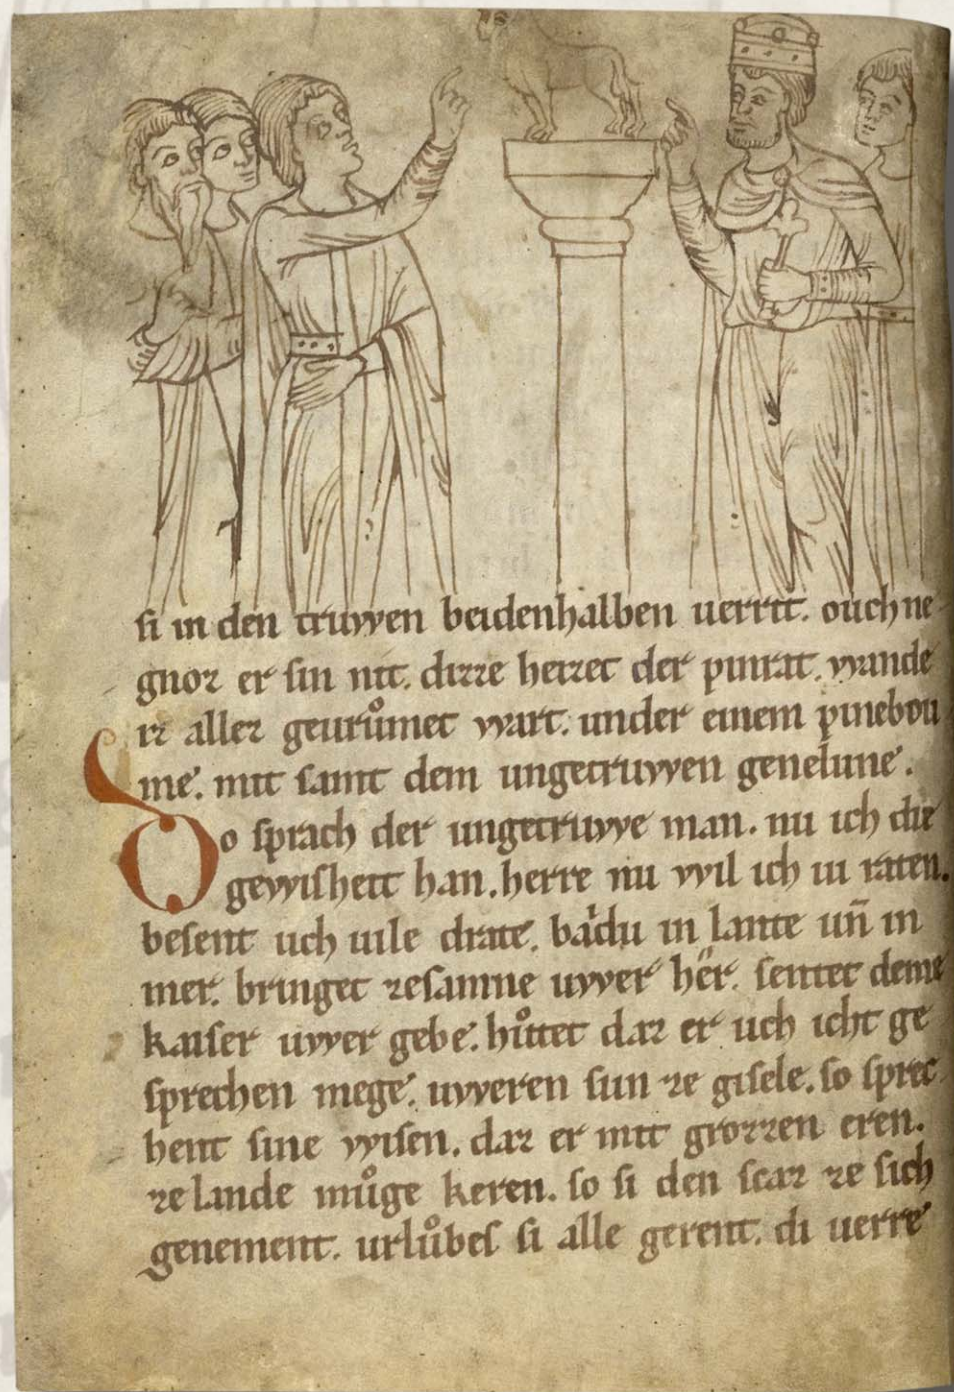 si in den truwen beidenhalben uerrit. ouch ne
gnoz er sin nit. dizze heizet der pinrat. wande
iz allez geurůmet wart. under einem pinebou
me. mit samt dem ungetruwen genelune.
Do sprach der ungetruwe man. nu ich die
gewisheit han. herre nu wil ich iu raten.
besent uch uile drate. baͥdu in lante uñ in
mer. bringet zesamne uwer her. sentet deme
kaiser uwer gebe. bůttet daz er uch icht ge
sprechen mege. uweren sun ze gisele. so sprec
hent sine wisen. daz er mit grozzen eren.
ze lande můge keren. so si den scaz ze sich
genement. urlůbes si alle gerent. di uerre